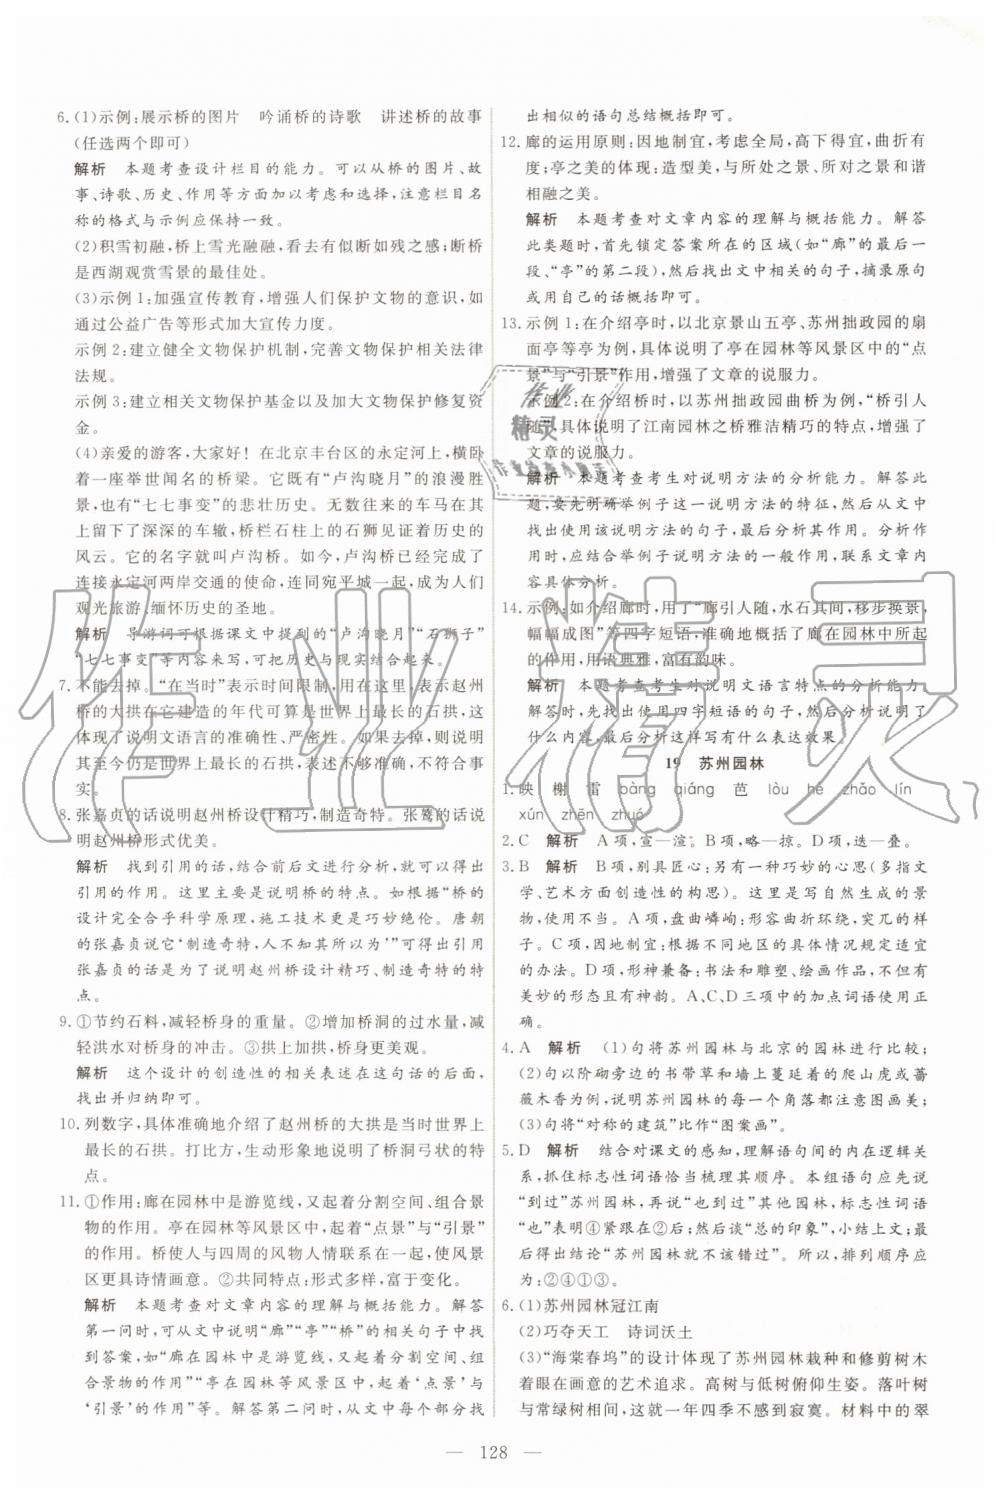 6. (1)示例:展示桥的图片　吟诵桥的诗歌　讲述桥的故事
(任选两个即可)
解析　本题考查设计栏目的能力。可以从桥的图片、故
事、诗歌、历史、作用等方面加以考虑选择,注意栏目名
称的格式与示例应保持一致。
(2)积雪初融,桥上雪光融融,看去有似断如残之感;断桥
是西湖观赏雪景的最佳处。
(3)示例1:加强宣传教育,增强人们保护文物的意识,如
通过公益广告等形式加大宣传力度。
示例2:建立健全文物保护机制,完善文物保护相关法律
法规。
示例3:建立相关文物保护基金以及加大文物保护修复资
金。
(4)亲爱的游客,大家好!在北京丰台区的永定河上,横卧
着一座举世闻名的桥梁。它有“卢沟晓月”的浪漫景象,
也有“七七事变”的悲壮历史。无数往来的车马在其
上留下了深深的车辙,桥栏石柱上的石狮见证着历史的
风云。它的名字就叫卢沟桥。如今,卢沟桥已经完成了
连接永定河两岸交通的使命,连同宛平城一起,成为人们
观光旅游、缅怀历史的圣地。
解析　导游词可根据课文中提到的“卢沟晓月”“石狮子”
“七七事变”等内容来写,可把历史与现实结合起来。
7. 不能去掉。“在当时”表示时间限制,用在这里,表示赵州
桥的大拱在它建造的年代可算是世界上最长的石拱,这
体现了说明文语言的准确性、严密性。如果去掉,则说明
其至今仍是世界上最长的石拱,表述不够准确,不符合事
实。
8. 张嘉贞的话说明赵州桥设计精巧,制造奇特。张鷟的话说
明赵州桥形式优美。
解析　找到引用的话,结合前后文进行分析,就可以得出
引用的作用。这里主要是说明桥的特点。如根据“桥的
设计完全合乎科学原理,施工技术更是巧妙绝伦。唐朝
的张嘉贞说它‘制造奇特,人不知其所以为’”可得出引用
张嘉贞的话是为了说明赵州桥设计精巧、制造奇特的特
点。
9. ①节约石料,减轻桥身的重量。②增加桥洞的过水量,减
轻洪水对桥身的冲击。③拱上加拱,桥身更美观。
解析　这个设计的创造性的相关表述在这句话的后面,
找出并归纳即可。
10. 列数字,具体准确地介绍了赵州桥的大拱是当时世界上
最长的石拱。打比方,生动形象地说明了桥洞弓状的特
点。
11. ①作用:廊在园林中是游览线,又起着分割空间、组合景
物的作用。亭在园林等风景区中,起着“点景”与“引景”
的作用。桥使人与四周的风物人情联系在一起,使风景
区更具诗情画意。②共同特点:形式多样,富于变化。
解析　本题考查对文章内容的理解与概括能力。解答
第一问时,可从文中说明“廊”“亭”“桥”的相关句子中找
到答案,如“廊在园林中是游览线,又起着分割空间、组
合景物的作用”“亭在园林等风景区中,起着‘点景’与
‘引景’的作用”等。解答第二问时,从文中每个部分找
出相似的语句总结概括即可。
12. 廊的运用原则:因地制宜,考虑全局,高下得宜,曲折有
度;亭之美的体现:造型美,与所处之景、所对之景和谐
相融之美。
解析　本题考查对文章内容的理解与概括能力。解答
此类题时,首先锁定答案所在的区域(如“廊”的最后一
段、“亭”的第二段),然后找出文中相关的句子,摘录原句
或用自己的话概括即可。
13. 示例1:在介绍亭时,以北京景山五亭、苏州拙政园的扇
面亭等亭为例,具体说明了亭在园林等风景区中的“点
景”与“引景”作用,增强了文章的说服力。
示例2:在介绍桥时,以苏州拙政园曲桥为例,“桥引人
随”,具体说明了江南园林之桥雅洁精巧的特点,增强了
文章的说服力。
解析　本题考查考生对说明方法的分析能力。解答此
题,要先明确举例子这一说明方法的特征,然后从文中
找出使用该说明方法的句子,最后分析其作用。分析作
用时,应结合举例子说明方法的一般作用,联系文章内
容具体分析。
14. 示例:如介绍廊时,用了“廊引人随,水石其间,移步换景,
幅幅成图”等四字短语,准确地概括了廊在园林中所起
的作用,用语典雅,富有韵味。
解析　本题考查考生对说明文语言特点的分析能力。
解答时,先找出使用四字短语的句子,然后分析说明了
什么内容,最后分析这样写有什么表达效果。
19　苏州园林
1. 映　榭　雷　bàng　qiáng　芭　lòu　hé　zhǎo　lín
xún　zhēn　zhuó
2. C　解析　A项,宣—渲。B项,略—掠。D项,迭—叠。
3. B　解析　B项,别具匠心:另有一种巧妙的心思(多指文
学、艺术方面创造性的构思)。这里是写自然生成的景
物,使用不当。A项,盘曲嶙峋:形容曲折环绕,突兀的样
子。C项,因地制宜:根据不同地区的具体情况规定适宜
的办法。D项,形神兼备:书法和雕塑、绘画作品,不但有
美妙的形态且有神韵。A、C、D三项中的加点词语使用正
确。
4. A　解析　(1)句将苏州园林与北京的园林进行比较;
(2)句以阶砌旁边的书带草和墙上蔓延着的爬山虎或蔷
薇木香为例,说明苏州园林的每一个角落都注意图画美;
(3)句将“对称的建筑”比作“图案画”。
5. D　解析　结合对课文的感知,理解语句间的内在逻辑关
系,抓住标志性词语恰当梳理其顺序。本组语句应先说
“到过”苏州园林,再说“也到过”其他园林,标志性词语
“也”表明④紧跟在②后;然后谈“总的印象”,小结上文;最
后得出结论“苏州园林就不该错过”。所以,排列顺序应
为:②④①③。
6. (1)苏州园林冠江南
(2)巧夺天工　诗词沃土
(3)“海棠春坞”的设计体现了苏州园林栽种和修剪树木
着眼在画意的艺术追求。高树与低树俯仰生姿。落叶树
与常绿树相间,这就一年四季不感到寂寞。材料中的翠
— 128 —
作业精灵
作业
精灵